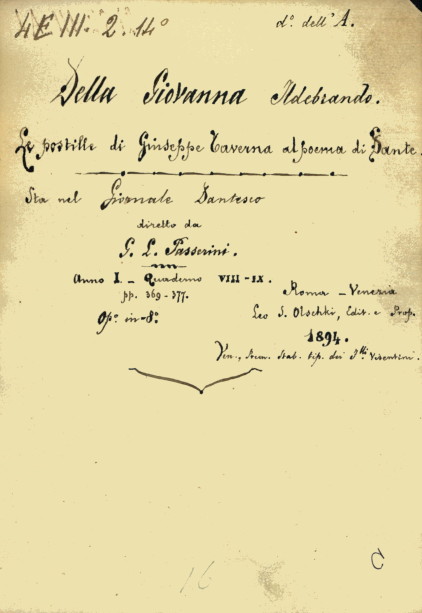 4 E III. 2º. 14º
dº. dell' A.
Della Giovanna Ildebrando.
Le postille di Giuseppe Taverna al poema di Dante.
Sta nel Giornale Dantesco
diretto da
G. L. Passerini.
Anno I - Quaderno VIII-IX.
pp. 369-377.
Opº in-8º
Roma - Venezia
Leo S. Olschki, Edit. e Prop.
1894.
Ven., Prem. Stab. tip. dei F.lli Visentini.
16
C